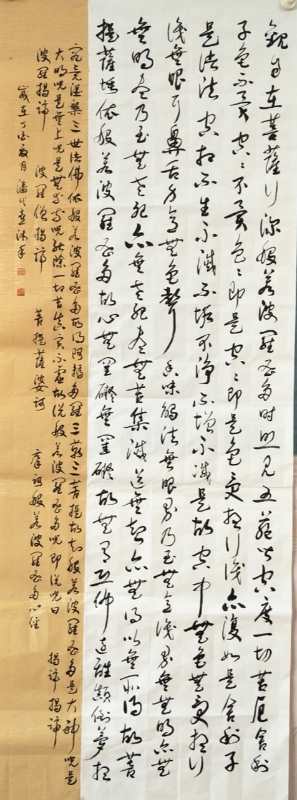 觀自在菩薩行深般若波羅蜜多時照見五蘊皆空度一切苦厄舍利
子色不異空々不異色々即是空々即是色受想行識亦復如是舍利子
是諸法空相不生不滅不垢不淨不增不減是故空中無色無受想行
識無眼耳鼻舌身意無色聲香味觸法無眼界乃至無意識界無無明亦無
無明盡乃至無老死亦無老死盡無苦集滅道無智亦無得以無所得故菩
提薩埵依般若波羅蜜多故心無罣礙無罣礙故無有恐怖遠離顛倒夢想
究竟涅槃三世諸佛依般若波羅蜜多故得阿耨多羅三藐三菩提故知般若波羅蜜多是大神咒是
大明咒是無上咒是無等等咒能除一切苦真實不虛故說般若波羅蜜多咒即說咒曰 揭諦揭諦
波羅揭諦 波羅僧揭諦 菩提薩婆訶 摩訶般若波羅蜜多心經
歲在丁酉夏月潘沐手